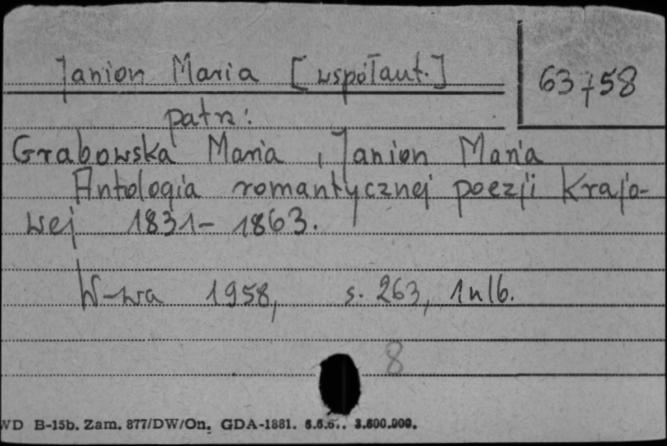 Janion Maria [współaut.]
63758
patrz:
Grabowska Maria, Janion Maria
Antologia romantycznej poezji krajo-
wej 1831-1863.
W-wa 1958, s. 263, 1nlb.
8
WD B-15b. Zam. 877/DW/On. GDA-1881.